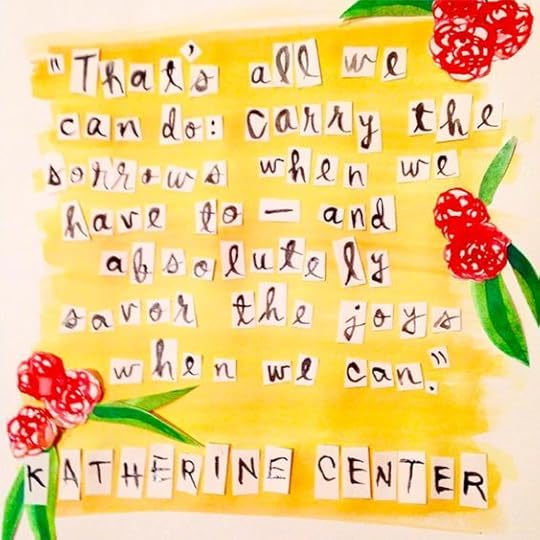 "That's all we
can do: carry the
sorrows when we
have to — and
absolutely
savor the joys
when we can."
KATHERINE CENTER